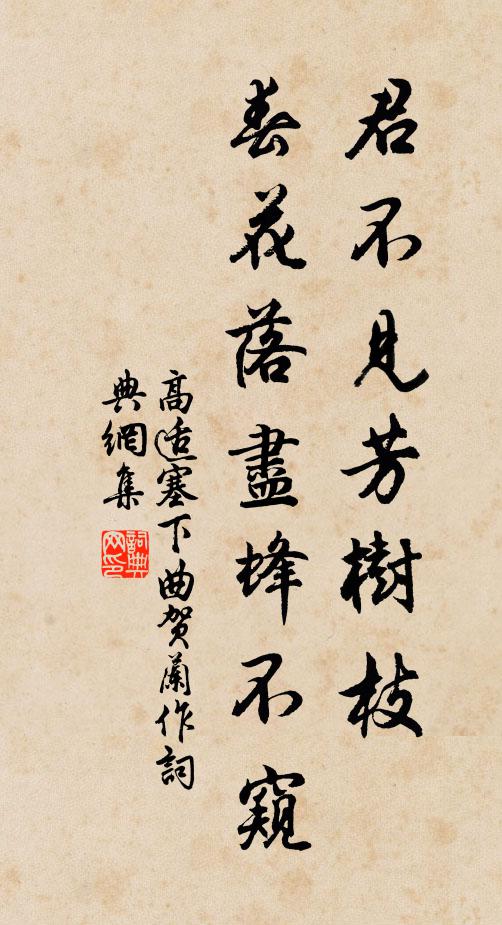 君不見芳樹枝
春花落盡蜂不窺
高适塞下曲贺蘭作詞
典網集
詞典
网印